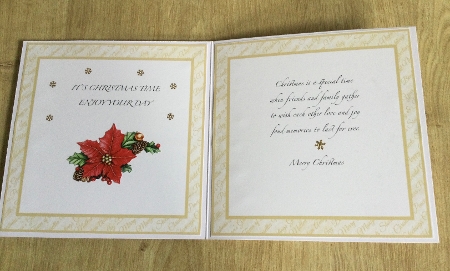 IT'S CHRISTMAS TIME
ENJOY YOUR DAY
Christmas is a special time
when friends and family gather
to wish each other love and joy
fond memories to last for ever.
Merry Christmas